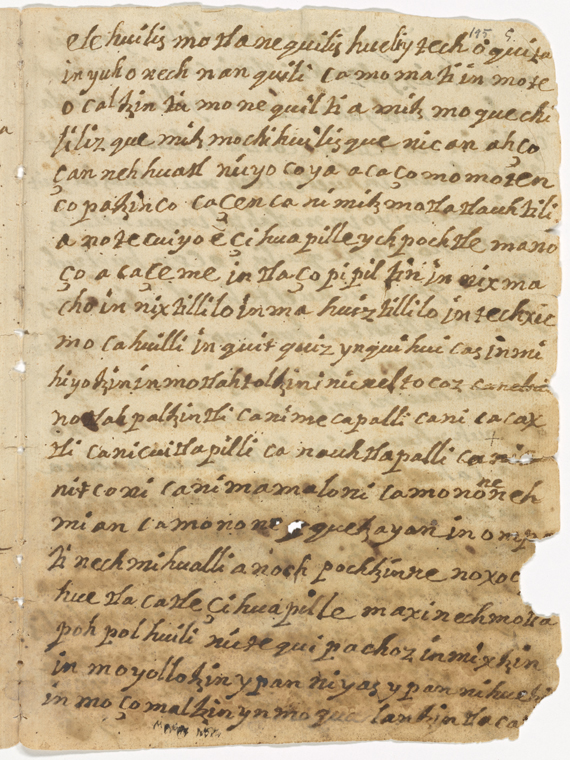 195 5.
elchuilis motlanequilis huel iytech o quiza
in yuh o nech nan quili ca mo mati in mote
o caltzin tu mo nequil ti a mitz moque chi
liliz que mitz mochi huilis que nican ah ço
çan neh huatl nicyo coya acaço momoten
copatzinco caçen ca ni mitz motlatlauhtili
a notecuiyo è çihuapille ychpochtle mano
ço a caçeme in tlaço pi pil tin in nixma
cho in nixtillilo in ma huiztillilo in techxic
mo cahuilli in quit quiz yn qui hui cas in mi
hiyotzin in motlahtoltzin in nicneltocoz
notlahpaltzintli canimecapalli cani cacax
tli canicuitlapilli ca nauhtlapalli cani
nitconi canimamaloni camononeh
ne
mian camonone quetzayan in omp
ti nech mihualli a noch pochtzinne noxoc
hue tlacatle çihuapille maxinechmotla
poh polhuili nictequi pachoz in mixtzin
in moyollotzin ypan niyaz ypan nihuetzi
in moçomaltzin yn moqua lantzin tlaca